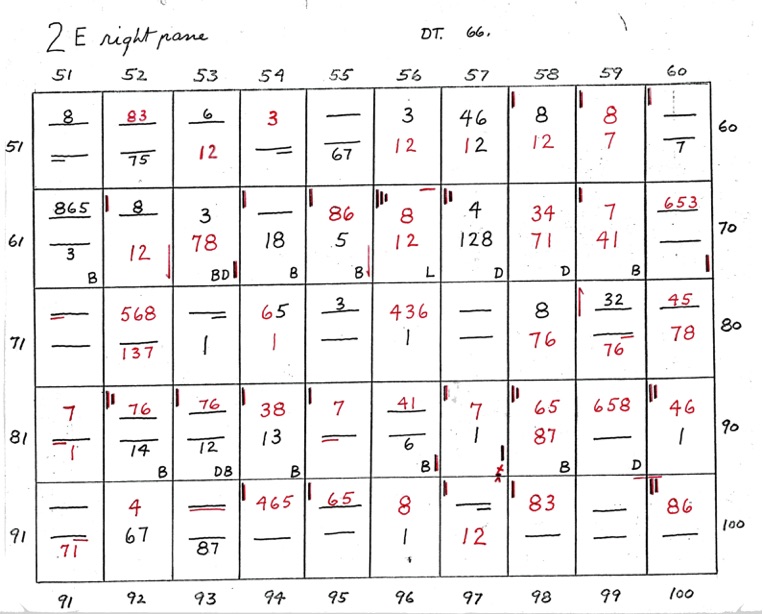 2 E right pane DT. 66.
51 52 53 54 55 56 57 58 59 60
8 83 6 3 — 3 46 8 8 —
51 = 75 12 = 67 12 12 12 7 7 60
865 8 3 — 86 8 4 34 7 653
61 3 12 78 18 5 12 128 71 41 — 70
B BD B B L D D B
= 568 = 65 3 436 — 8 32 45
71 — 137 1 1 — 1 — 76 76 78 80
7 76 76 38 7 41 7 65 658 46
81 1 14 12 13 = 6 1 87 — 1 90
B DB B B B D
— 4 = 465 65 8 = 83 — 86
91 71 67 87 — — 1 12 — — — 100
91 92 93 94 95 96 97 98 99 100